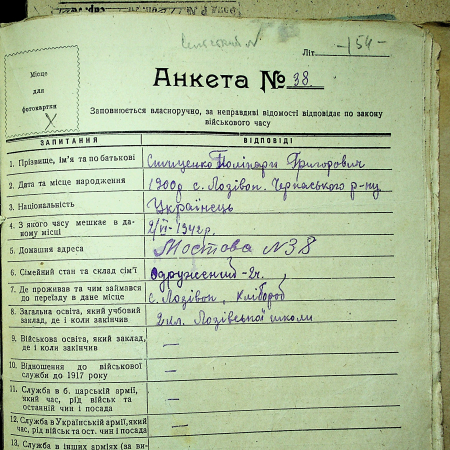 Літ. —154—
Місце
для
фотокартки
Анкета № 38.
Заповнюється власноручно, за неправдиві відомості відповідає по закону
військового часу
ЗАПИТАННЯ ВІДПОВІДІ
1. Прізвище, ім'я та по батькові Григорович
2. Дата та місце народження 1900р с. Лозівок. Черкаського р-ну
3. Національність Українець
4. З якого часу мешкає в да-
ному місці 2/VI-1942р.
5. Домашня адреса Мостова №38
6. Сімейний стан та склад сім'ї Одружений -2ч.
7. Де проживав та чим займався
до переїзду в дане місце с. Лозівок, хлібороб
8. Загальна освіта, який учбовий
заклад, де і коли закінчив 2 кл. Лозівської школи
9. Військова освіта, який заклад,
де і коли закінчив —
10. Відношення до військової
служби до 1917 року —
11. Служба в б. царській армії,
який час, рід військ та
останній чин і посада —
12. Служба в Українській армії, який
час, рід військ та ост. чин і посада —
13. Служба в інших арміях (за ви-